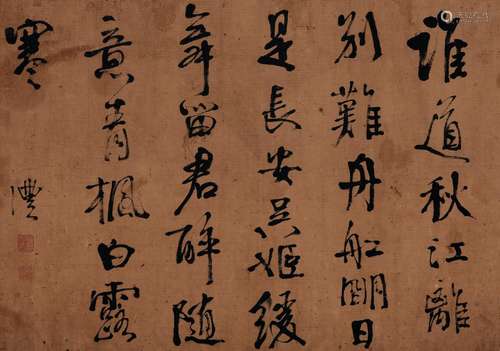 誰道秋江離
別難舟舡明日
是長安吳姬緩
舞留君醉随
意青楓白露
寒